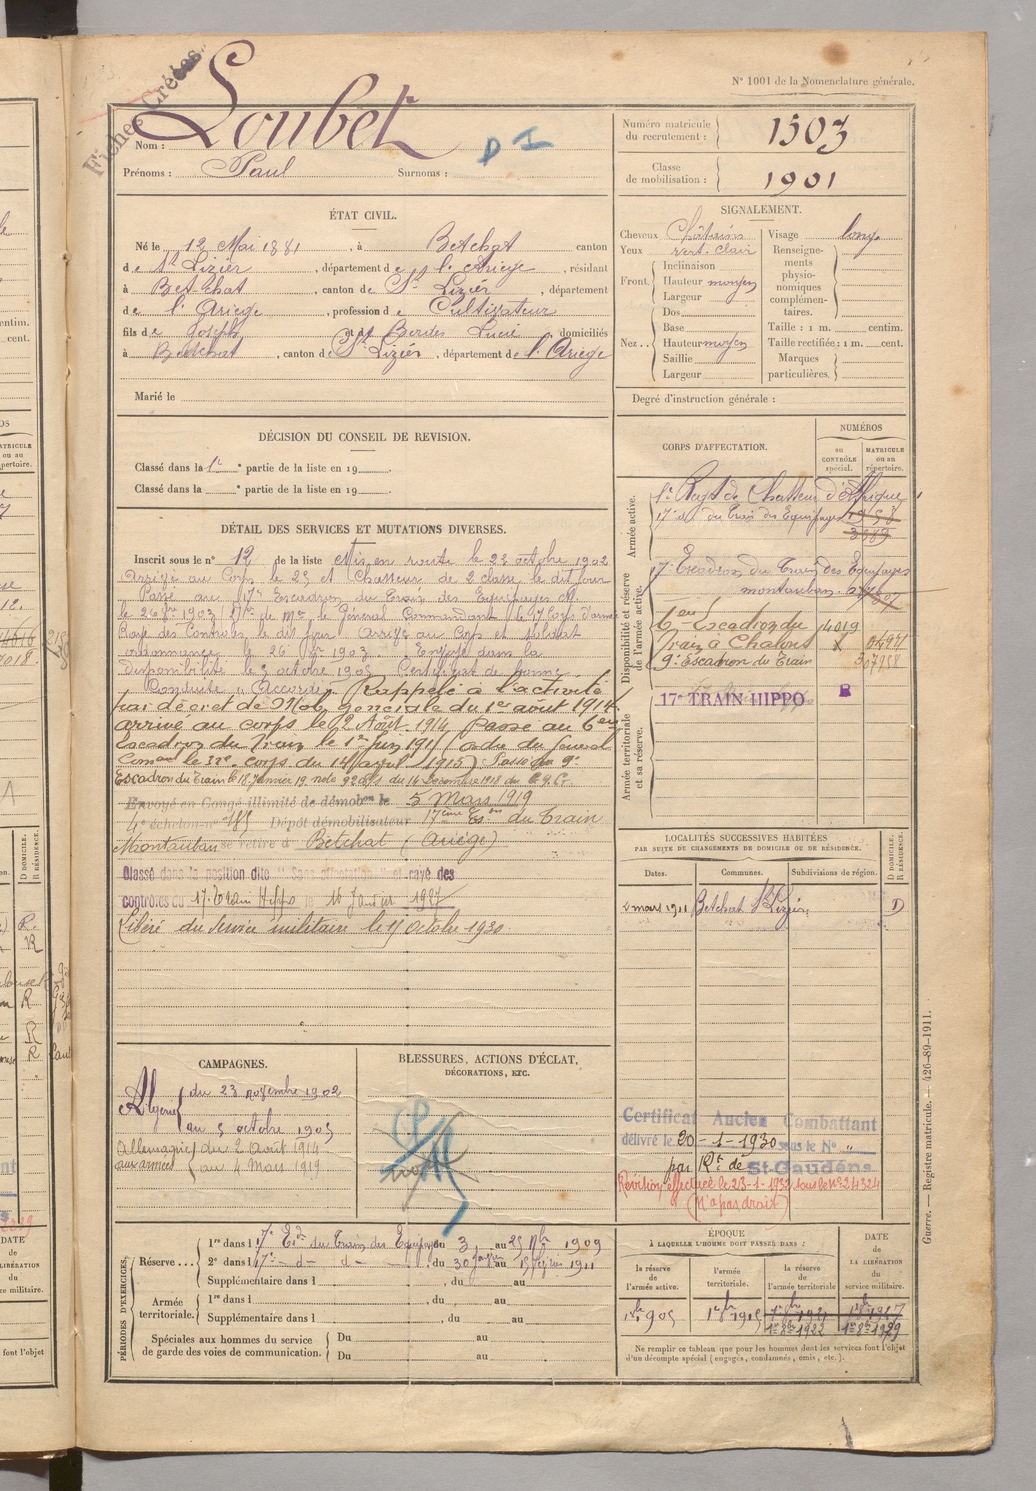 Fiches Créées
N° 1001 de la Nomenclature générale.
Nom : Loubet
D I
Prénoms : Paul Surnoms :
Numéro matricule du recrutement : 1503
Classe de mobilisation : 1901
ÉTAT CIVIL.
Né le 12 Mai 1881, à Betchat canton
de St Lizier, département de l'Ariège, résidant
à Betchat, canton de St Lizier, département
de l'Ariège, profession de Cultivateur
fils de Joseph et de Bordes Lucie domiciliés
à Betchat, canton de St Lizier, département de l'Ariège
Marié le
SIGNALEMENT.
Cheveux Châtains
Yeux vert. clair
Front. Inclinaison
Hauteur moyen
Largeur
Nez.. Dos
Base
Hauteur moyen
Saillie
Largeur
Visage long.
Renseignements physionomiques complémentaires.
Taille : 1 m. centim.
Taille rectifiée : 1 m. cent.
Marques particulières.
Degré d'instruction générale :
DÉCISION DU CONSEIL DE REVISION.
Classé dans la 1e partie de la liste en 19 .
Classé dans la e partie de la liste en 19 .
DÉTAIL DES SERVICES ET MUTATIONS DIVERSES.
Inscrit sous le n° 12 de la liste Mis en route le 22 octobre 1902
Arrivé au Corps le 23 et Chasseur de 2 classe le dit jour
Passé au 17e Escadron du Train des Equipages
le 26 1903 de Mr le Général Commandant le 17 Corps d'armée
Rayé des Contrôles le dit jour Arrivé au Corps et soldat
ordonnance le 26 1903. Envoyé dans la
Disponibilité le 5 octobre 1905 Certificat de bonne
Conduite "Accordé" Rappelé à l'activité
par décret de Mob. Générale du 1er août 1914
arrivé au corps le 2 Août 1914 Passé au 6em
Escadron du train le 1er Juin 1915 (ordre du Général
Comdt le 32e corps du 14 avril 1915) Passé au 9e
Escadron du Train le 18 Janvier 19 note du 16 Décembre 1918 du G.Q.G.
Envoyé en Congé illimité de démobon le 5 Mars 1919
4e échelon n° 185 Dépôt démobilisateur 17ème Eson du Train
Montauban se retire à Betchat (Ariège)
Classé dans la position dite "Sans affectation" et rayé des
contrôles du 17e Train Hippo le 16 Janvier 1927
Libéré du service militaire le 15 Octobre 1930.
CORPS D'AFFECTATION.
NUMÉROS
au CONTRÔLE spécial.
MATRICULE ou au répertoire.
Armée active.
1er Regt de Chasseurs d'Afrique
17e Ed du Train des Equipages 1958
3989
Disponibilité et réserve de l'armée active.
17e Escadron du Train des Equipages
montauban.
6em Escadron du 4019
Train à Chalons X
9e Escadron du Train 307958
Armée territoriale et sa réserve.
17e TRAIN HIPPO R
LOCALITÉS SUCCESSIVES HABITÉES
PAR SUITE DE CHANGEMENTS DE DOMICILE OU DE RÉSIDENCE.
Dates. Communes. Subdivisions de région. D DOMICILE. R RÉSIDENCE.
mars 1911 Betchat St Lizier D
Certificat Ancien Combattant
délivré le 20-1-1930 sous le N° "
par Rt de St-Gaudens
Révision effectuée le 23-1-1932 sous le N° 24324
(N'a pas droit)
CAMPAGNES.
Algérie du 23 novembre 1902
au 5 octobre 1905
Allemagne du 2 Août 1914
aux armées au 4 Mars 1919
BLESSURES, ACTIONS D'ÉCLAT,
DÉCORATIONS, ETC.
PÉRIODES D'EXERCICES
Réserve... 1re dans l 17e Ed du Train des Equipages du 3 au 25 9bre 1909
2e dans l 17e -d- d- du 30 Janvier au 15 février 1911
Supplémentaire dans l , du au
Armée territoriale. 1re dans l , du au
Supplémentaire dans l , du au
Spéciales aux hommes du service de garde des voies de communication. Du au
Du au
ÉPOQUE
À LAQUELLE L'HOMME DOIT PASSER DANS :
la réserve de l'armée active.
l'armée territoriale.
la réserve de l'armée territoriale.
DATE de LA LIBÉRATION du service militaire.
1905 1915 1921 1927
1922 1929
Ne remplir ce tableau que pour les hommes dont les services font l'objet
d'un décompte spécial (engagés, condamnés, omis, etc.).
Guerre. — Registre matricule. — 426-89-1911.